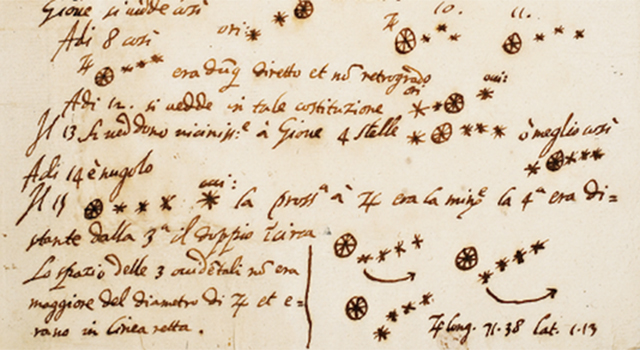 Gioue si uedde così
Adi 8 così ori: ♃ 10. 11.
♃ era dūq. diretto et nõ retrogrado
Adi 12. si uedde in tale costituzione ori: occi:
Il 13 si ueddono uiciniss.e à Gioue 4 stelle ò meglio così
Adi 14 è nugolo
Il 15 occi: la pross.a à ♃ era la min.e la 4.a era di=
stante dalla 3.a il doppio ĩcirca
Lo spazio delle 3 occidẽtali nõ era
maggiore del diametro di ♃ et e=
rano in linea retta.
♃ long. 71.38 lat. 1.13